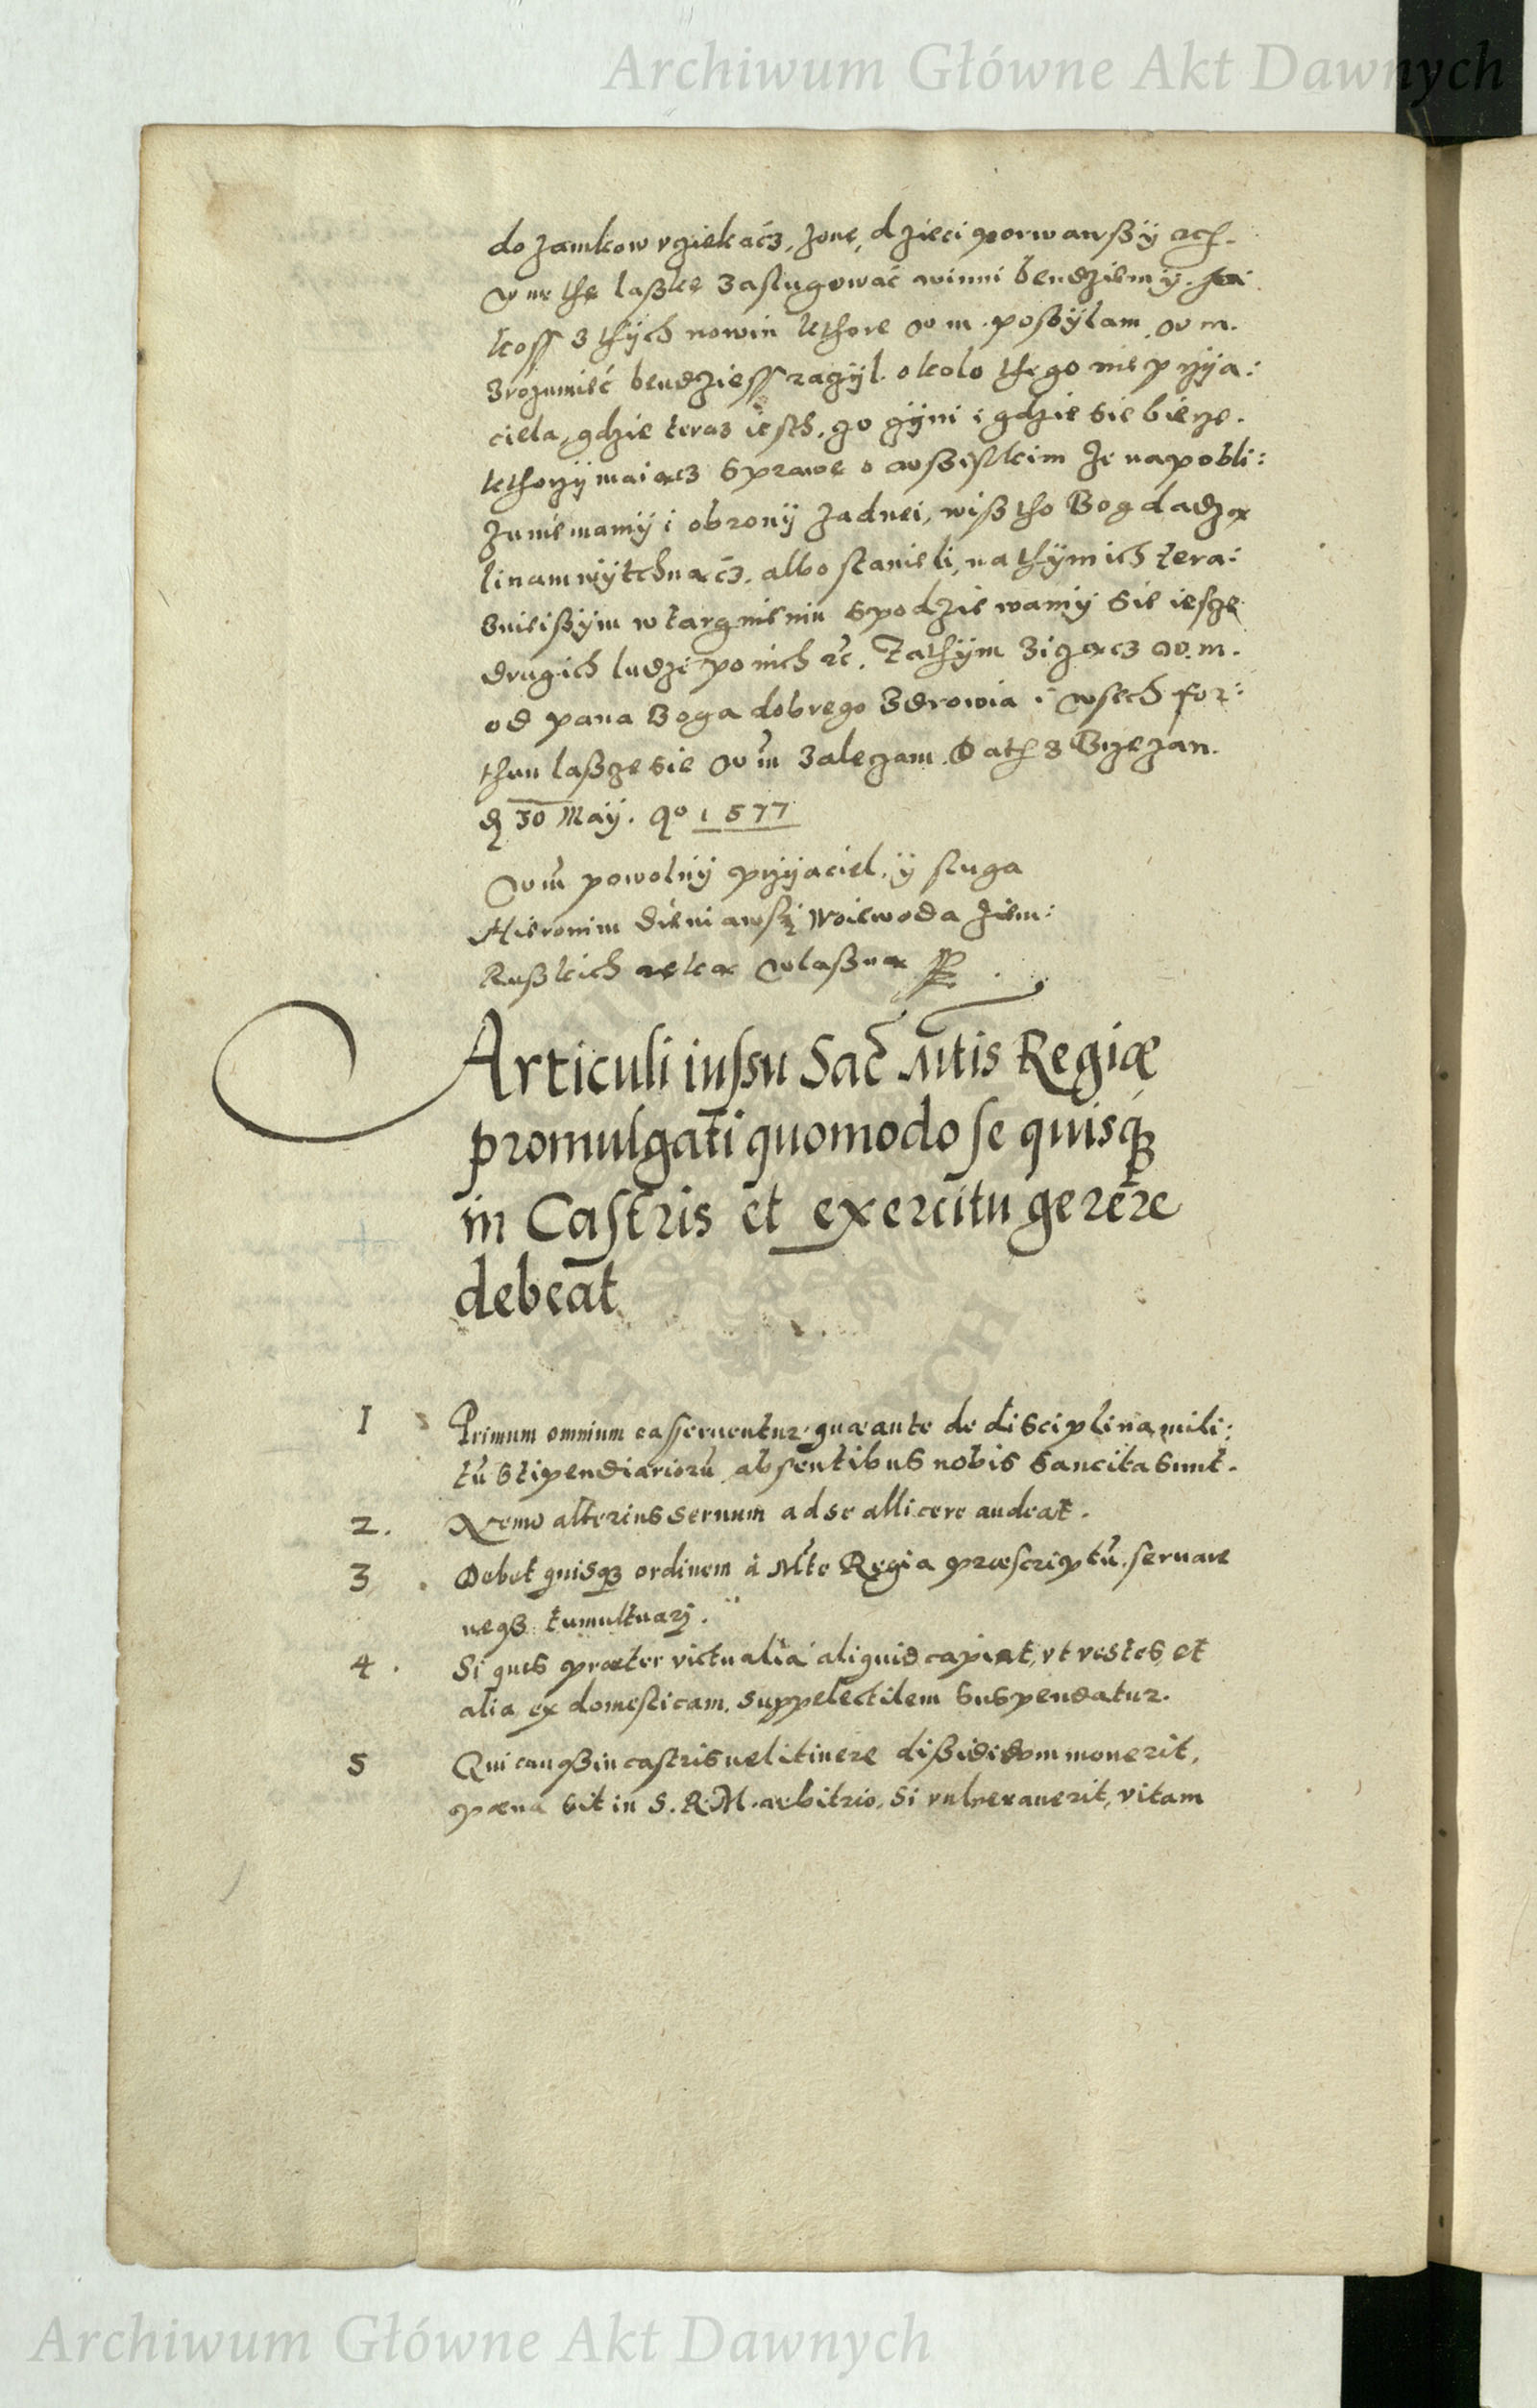 Archiwum Główne Akt Dawnych
do zamkow vziekacz, zone, dzieci porwawßÿ etc.
w m the laßke zaslugowac winni bendziemÿ. Ja:
koss z thÿch nowin kthore w m. posÿlam w m.
zrozumiec bendziess raczÿl okolo thego nieprzÿia:
ciela, gdzie teraz iesth, zo czÿni i gdzie sie bierze.
kthorzÿ maiacz sprawe o wßistkim ze na pobli:
zu nie mamÿ i obronÿ zadnei, wiß tho Bog dadza
li nam wÿtchnacz, albo stanieli, na thÿm ich tera:
znieißÿm wtargnieniu spodziewamÿ sie iesze
drugich ludzi po nich etc. Zathÿm zicząc w. m.
od pana Boga dobrego zdrowia i wsech for:
thun laßcze sie w m zalezam. Dath z Brzezan.
d 30 Maÿ. Ao 1577
W m powolnÿ przÿiaciel, ÿ sluga
Hieronim Sieniawskÿ Woiewoda Ziem:
Rußkich reka wlaßna
Articuli iussu Sac Mtis Regiæ
promulgati quomodo se quisq
in Castris et exercitu gerere
debeat
1 Primum omnium ea sseruentur quæ ante de disciplina mili:
tū stipendiariorū absentibus nobis sancita sunt.
2. Nemo alterius seruum ad se allicere audeat.
3 Debet quisq ordinem à Mte Regia præscriptū seruare
neq tumultuarj.
4. Si quis præter victualia aliquid capiat, vt vestes, et
alia ex domesticam suppelectilem suspendatur.
5 Quicunq in castris uel itinere dißidium mouerit,
pœna sit in S. R. M. arbitrio, si vulnerauerit, vitam
Archiwum Główne Akt Dawnych